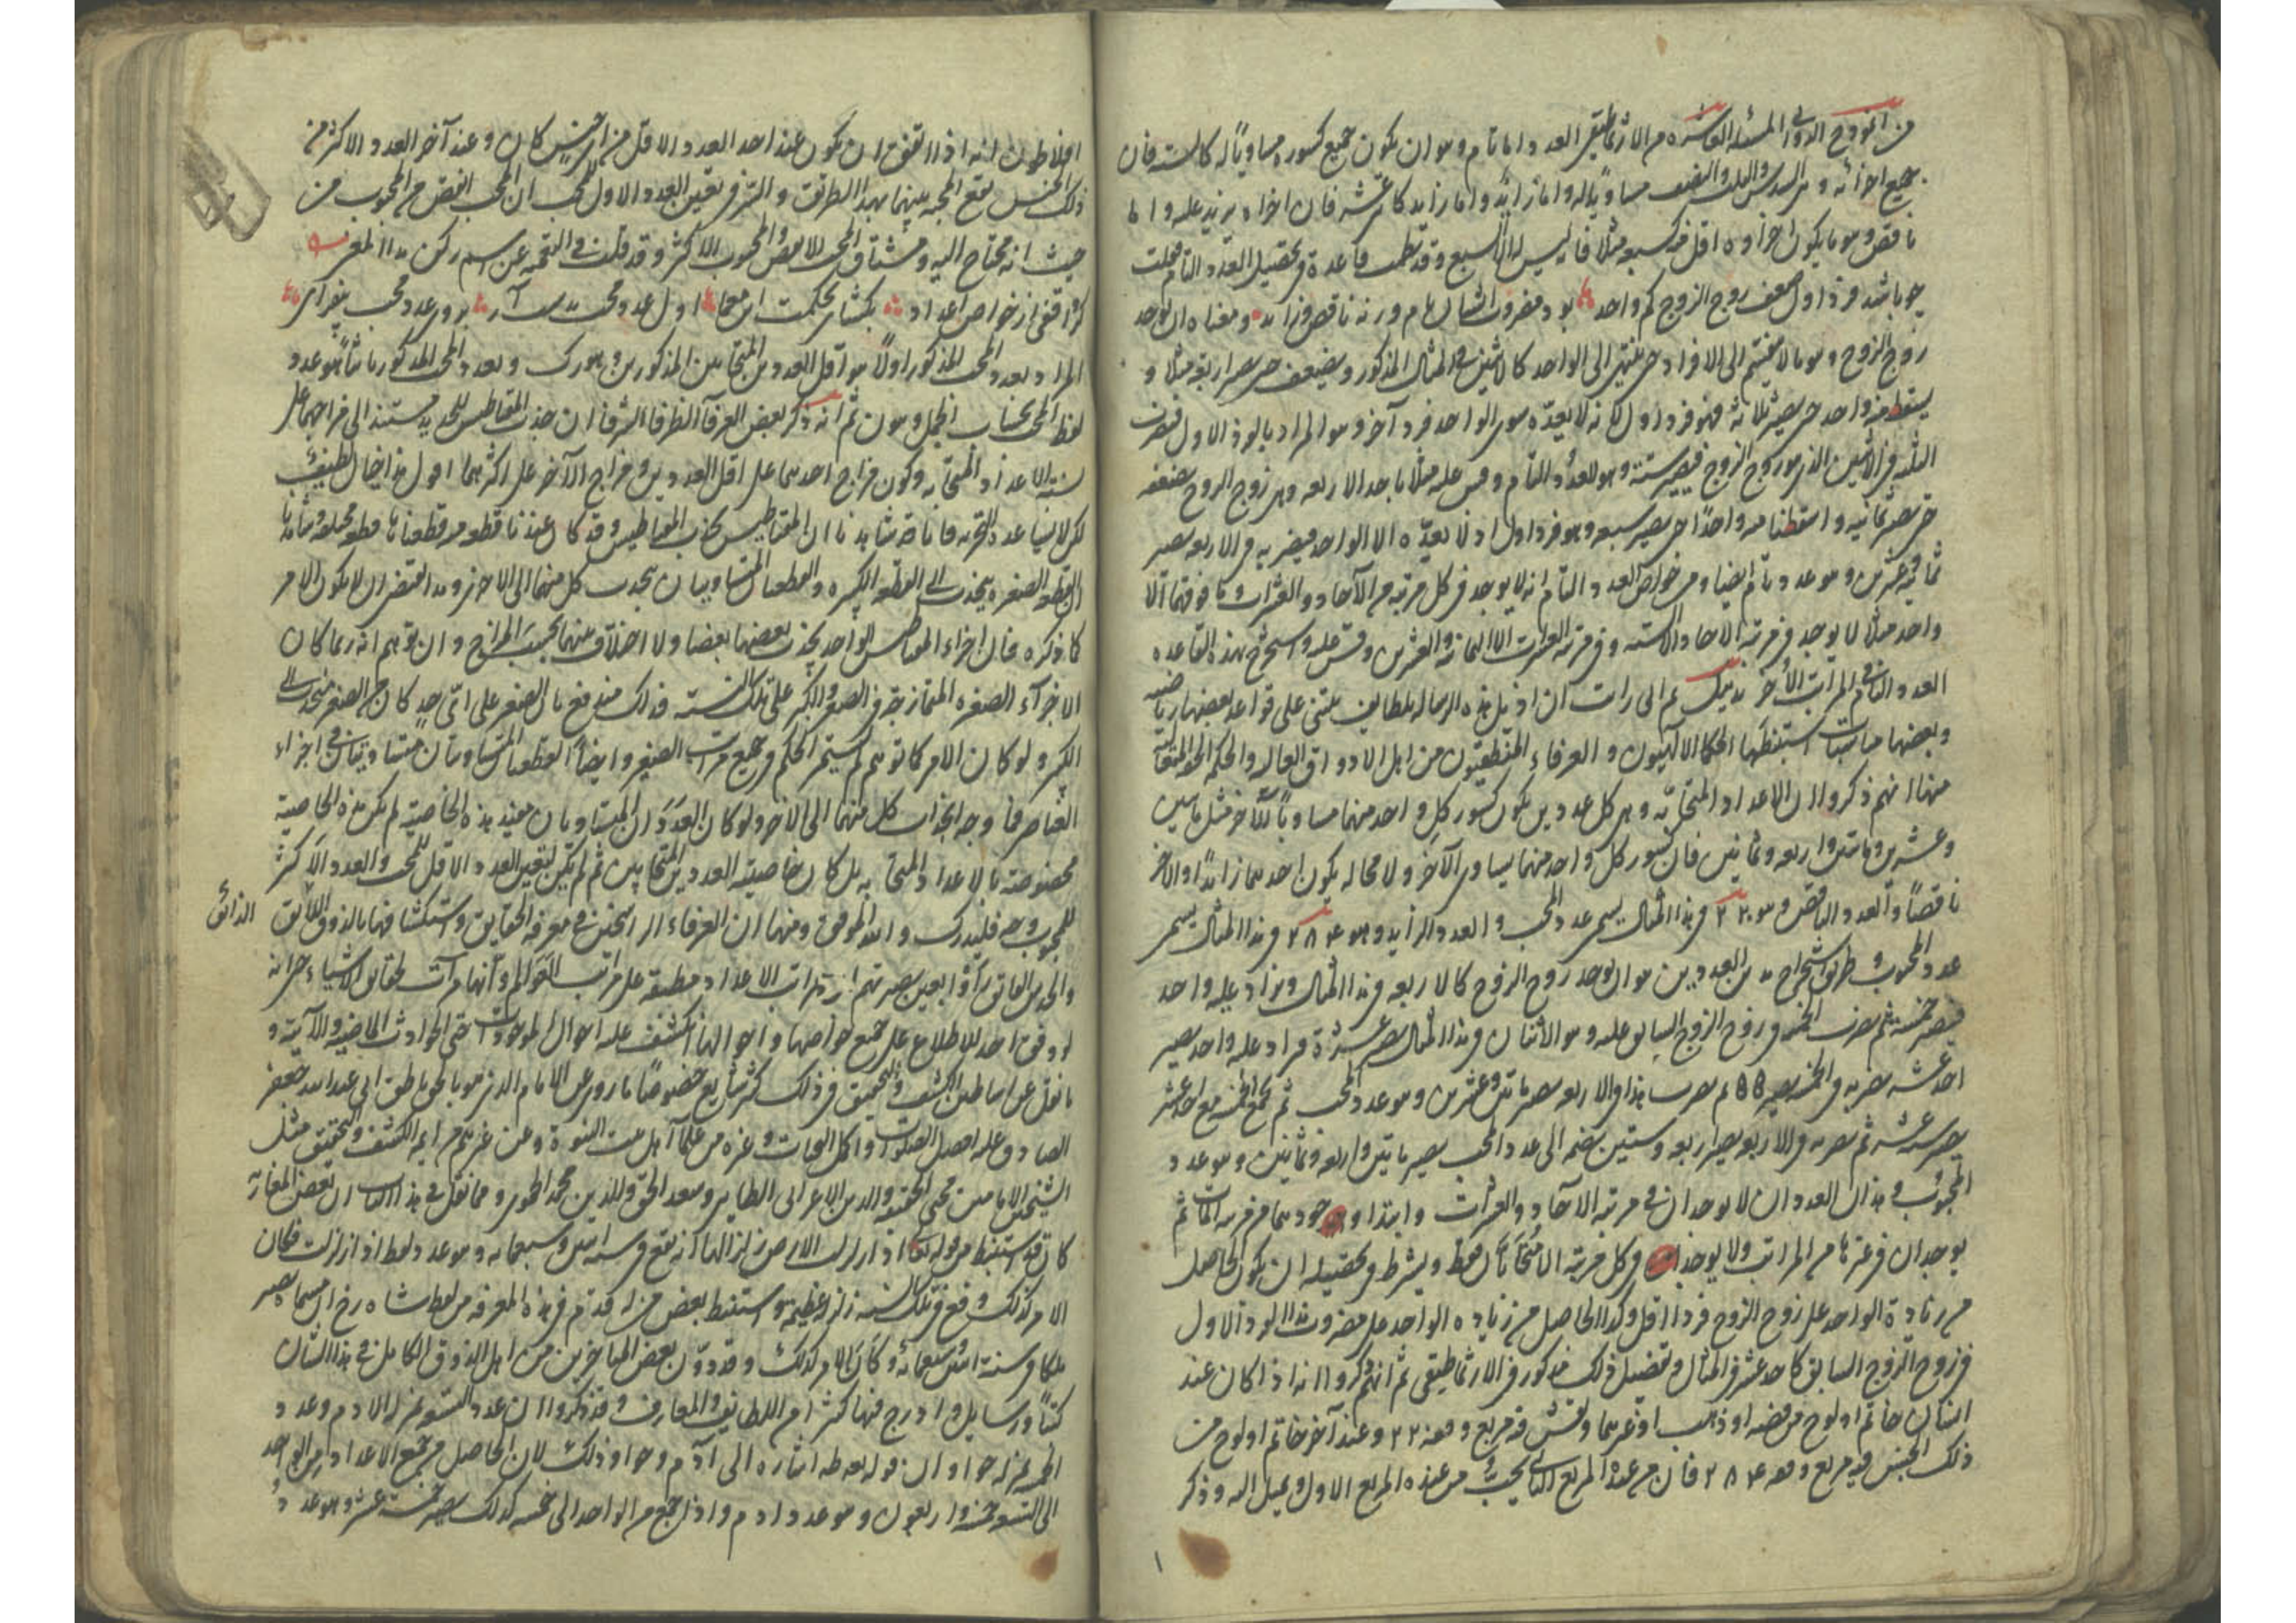 من انموذج الدواني المسئلة العاشرة من الارثماطيقي العدد اما تام وهو ان يكون جميع كسوره مساويًا له كالستة فان
جميع اجزائه وهي السدس والثلث والنصف مساويًا له واما زايد واما زايد كاثنى عشر فان اجزاءه يزيد عليه واما
ناقص وهو ما يكون اجزاوه اقل منه كسبعة مثلا فانه ليس له الا السبع وقد نظمت قاعدة في تحصيل العدد التام فقلت
چو باشد فرد اول ضعف زوج الزوج كم واحد بود مضروب ايشان تام ورنه ناقص وزايد ومعناه ان يوجد
زوج الزوج وهو ما لا ينتهى الى الافراد حتى ينتهى الى الواحد كالاثنين في المثال المذكور ويضعف حتى يصير اربعة مثلا و
يسقط منه واحد حتى يصير ثلاثة فهو فرد اول لانه لا يعده سوى الواحد فرد آخر وهو المراد بالفرد الاول فيضرب
الثلثة في الاثنين الذي هو زوج الزوج فيصير ستة وهو العدد التام وقس عليه مثلا ناخذ الاربعة وهي زوج الزوج ضعفه
حتى يصير ثمانية واسقطنا منه واحدًا حتى يصير سبعة وهو فرد اول اذ لا يعده الا الواحد فيضربه في الاربعة يصير
ثمانية وعشرين وهو عدد تام ايضا ومن خواص العدد التام انه لا يوجد في كل مرتبة من الآحاد والعشرات وما فوقهما الا
واحد مثلا لا يوجد في مرتبة الآحاد الا الستة وفي مرتبة العشرات الا الثمانية والعشرين وقس عليه واستخرج بهذه القاعدة
العدد التام في المراتب الأخر تذنيب ثم انى رايت ان اذيل هذه الرسالة بلطايف يبتنى على قواعد بعضها رياضية
وبعضها مناسبات استنبطها الحكما الالهيون والعرفاء المتحققون من اهل الاذواق العالية والحكم الحقة المتعالية
منها انهم ذكروا ان الاعداد المتحابة وهي كل عددين يكون كسور كل واحد منهما مساويًا للآخر مثل مايتين
وعشرين ومايتين واربعة وثمانين فان كسور كل واحد منهما يساوى الآخر ولا محالة يكون احدهما زايدًا والآخر
ناقصًا والعدد الناقص وهو ٢٢٠ في هذا المثال يسمى عدد المحب والعدد الزايد وهو ٢٨٤ في هذا المثال يسمى
عدد المحبوب وطريق استخراج هذين العددين هو ان يوجد زوج الزوج كالاربعة في هذا المثال ويزاد عليه واحد
فيصير خمسة ثم يضرب الخمسة في زوج الزوج السابق عليه وهو الاثنان في هذا المثال يصير عشرة فيزاد عليه واحد يصير
احد عشر يضربه في الخمسة يصير ٥٥ ثم يضرب هذا في الاربعة يصير مايتين وعشرين وهو عدد المحب ثم يجمع الخمسة مع احد عشر
يصير ستة عشر ثم يضربه في الاربعة يصير اربعة وستين يضم الى عدد المحب يصير مايتين واربعة وثمانين وهو عدد
المحبوب وهذان العددان لا يوجدان في مرتبة الآحاد والعشرات وابتداء وجودهما من مرتبة المآت ثم
يوجدان في غيرها من المراتب ولا يوجد في كل مرتبة الا متحابان فقط ويشترط في تحصيله ان يكون الحاصل
من زيادة الواحد على زوج الزوج فردا اول وكذا الحاصل من زيادة الواحد على مضروب هذا الفرد الاول
في زوج الزوج السابق كاحد عشر في المثال وتفصيل ذلك مذكور في الارثماطيقي ثم انهم ذكروا انه اذا كان عند
انسان خاتم او لوح من فضة او ذهب او غيرهما ونقش فيه مربع وفقه ٢٢٠ وعند آخر خاتم او لوح من
ذلك الجنس فيه مربع وفقه ٢٨٤ فان من عنده المربع الثاني يحب من عنده المربع الاول ويميل اليه وذكر
افلاطون انه اذا اتفق ان يكون عند احد العدد الاقل من اي جنس كان وعند آخر العدد الاكثر من
ذلك الجنس يقع المحبة بينهما بهذا الطريق والسر في تعيين العدد الاول للمحب ان المحب انقص من المحبوب من
حيث انه محتاج اليه ومشتاق المحب الانقص والمحبوب الاكثر وقد قلت في التعمية عن اسم ركن هذا المعنى
گر واقفى از خواص اعداد بگشاى بحكمت اين معما اول عدد محب بدست آر بر وى عدد محب بيفزاى
المراد بعدد المحب المذكور اولًا هو اقل العددين المتحابين المذكورين وهو رك وبعدد المحب المذكور ثانيًا هو عدد
لفظ المحب بحساب الجمل وهو ن ثم انه ذكر بعض العرفآ الظرفآ الشرفآ ان جذب المقناطيس للحديد مستند الى مزاجهما على
نسبة الاعداد المتحابة وكون مزاج احدهما على اقل العددين ومزاج الآخر على اكثرهما اقول هذا خيال لطيف
لكن لا يساعده التجربة فانا قد شاهدنا ان المقناطيس يجذب المقناطيس وقد كان عندنا قطعة منه قطعناها قطعا مختلفة وشاهدنا
ان القطعة الصغيرة ينجذب الى القطعة الكبيرة والقطعتان المتساويتان يجذب كل منهما الى الاخرى وهذا يقتضى ان لا يكون الامر
كما ذكره فان اجزاء المقناطيس الواحد يجذب بعضها بعضا ولا اختلاف بينهما بحسب المزاج وان توهم انه ربما كان
الاجزآء الصغيرة الممتازجة في الصغر والكبر على تلك النسبة فذلك مندفع بان الصغير على اىّ حد كان من الصغر ينجذب الى
الكبير ولو كان الامر كما توهم لم يستمر الحكم في جميع مراتب الصغير وايضًا القطعتان المتساويتان متساويتان في اجزاء
العناصر فما وجه انجذاب كل منهما الى الاخر ولو كان العددان المتساويان مفيد هذه الخاصية لم يكن هذه الخاصية
مخصوصة بالاعداد المتحابة بل كان خاصية العددين المتحابين ثم لم يكن لتعيين العدد الاقل للمحب والعدد الاكثر
للمحبوب وجه فليدرك والله الموفق ومنها ان العرفاء الراسخين في معرفة الحقايق واستكشافها بالذوق اللايق الذائق
والحدس الفايق رأوا بعين بصيرتهم ان مراتب الاعداد منطبقة على مراتب العوالم وانها مرآت لحقايق الاشياء حتى انه
لو وفق احد للاطلاع على جميع خواصها واحوالها انكشف عليه احوال الموجودات حتى الحوادث الماضية والآتية و
ما نقل عن اساطين الكشف والتحقيق في ذلك كثير شايع خصوصًا ما روى عن الامام الذي هو بالحق ناطق ابى عبد الله جعفر
الصادق عليه افضل الصلوات واكمل التحيات وغيره من علمآ اهل بيت النبوة وعن غيرهم من ايمة الكشف والتحقيق مثل
الشيخين الامامين محيى الحق والدين الاعرابى الطايى وسعد الحق والدين محمد الحموى ومما نقل في هذا الباب ان بعض المغاربة
كان قد استنبط من قوله تعالى اذا زلزلت الارض زلزالها انه تقع في سنة اثنين وسبعمايه وهو عدد لفظ اذا زلزلت فكان
الامر كذلك ووقع في تلك السنة زلزلة عظيمة واستنبط بعض من له قدم في هذه المعرفة من لفظ شاه رخ انه يصير
ملكا في سنة وكان الامر كذلك وقد دون بعض المتاخرين من اهل الذوق الكامل في هذا الشان
كتبًا ورسايل وادرج فيها كثيرًا من اللطايف والمعارف وقد ذكروا ان عدد التسع بمنزلة لآدم وعدد
الخمسة بمنزلة حوا وان قوله تعالى طه اشارة الى آدم وحوا وذلك لان الحاصل من جمع الاعداد من الواحد
الى التسعة خمسة واربعون وهو عدد ادم واذا جمع من الواحد الى خمسة كذلك يصير خمسة عشر وهو عدد